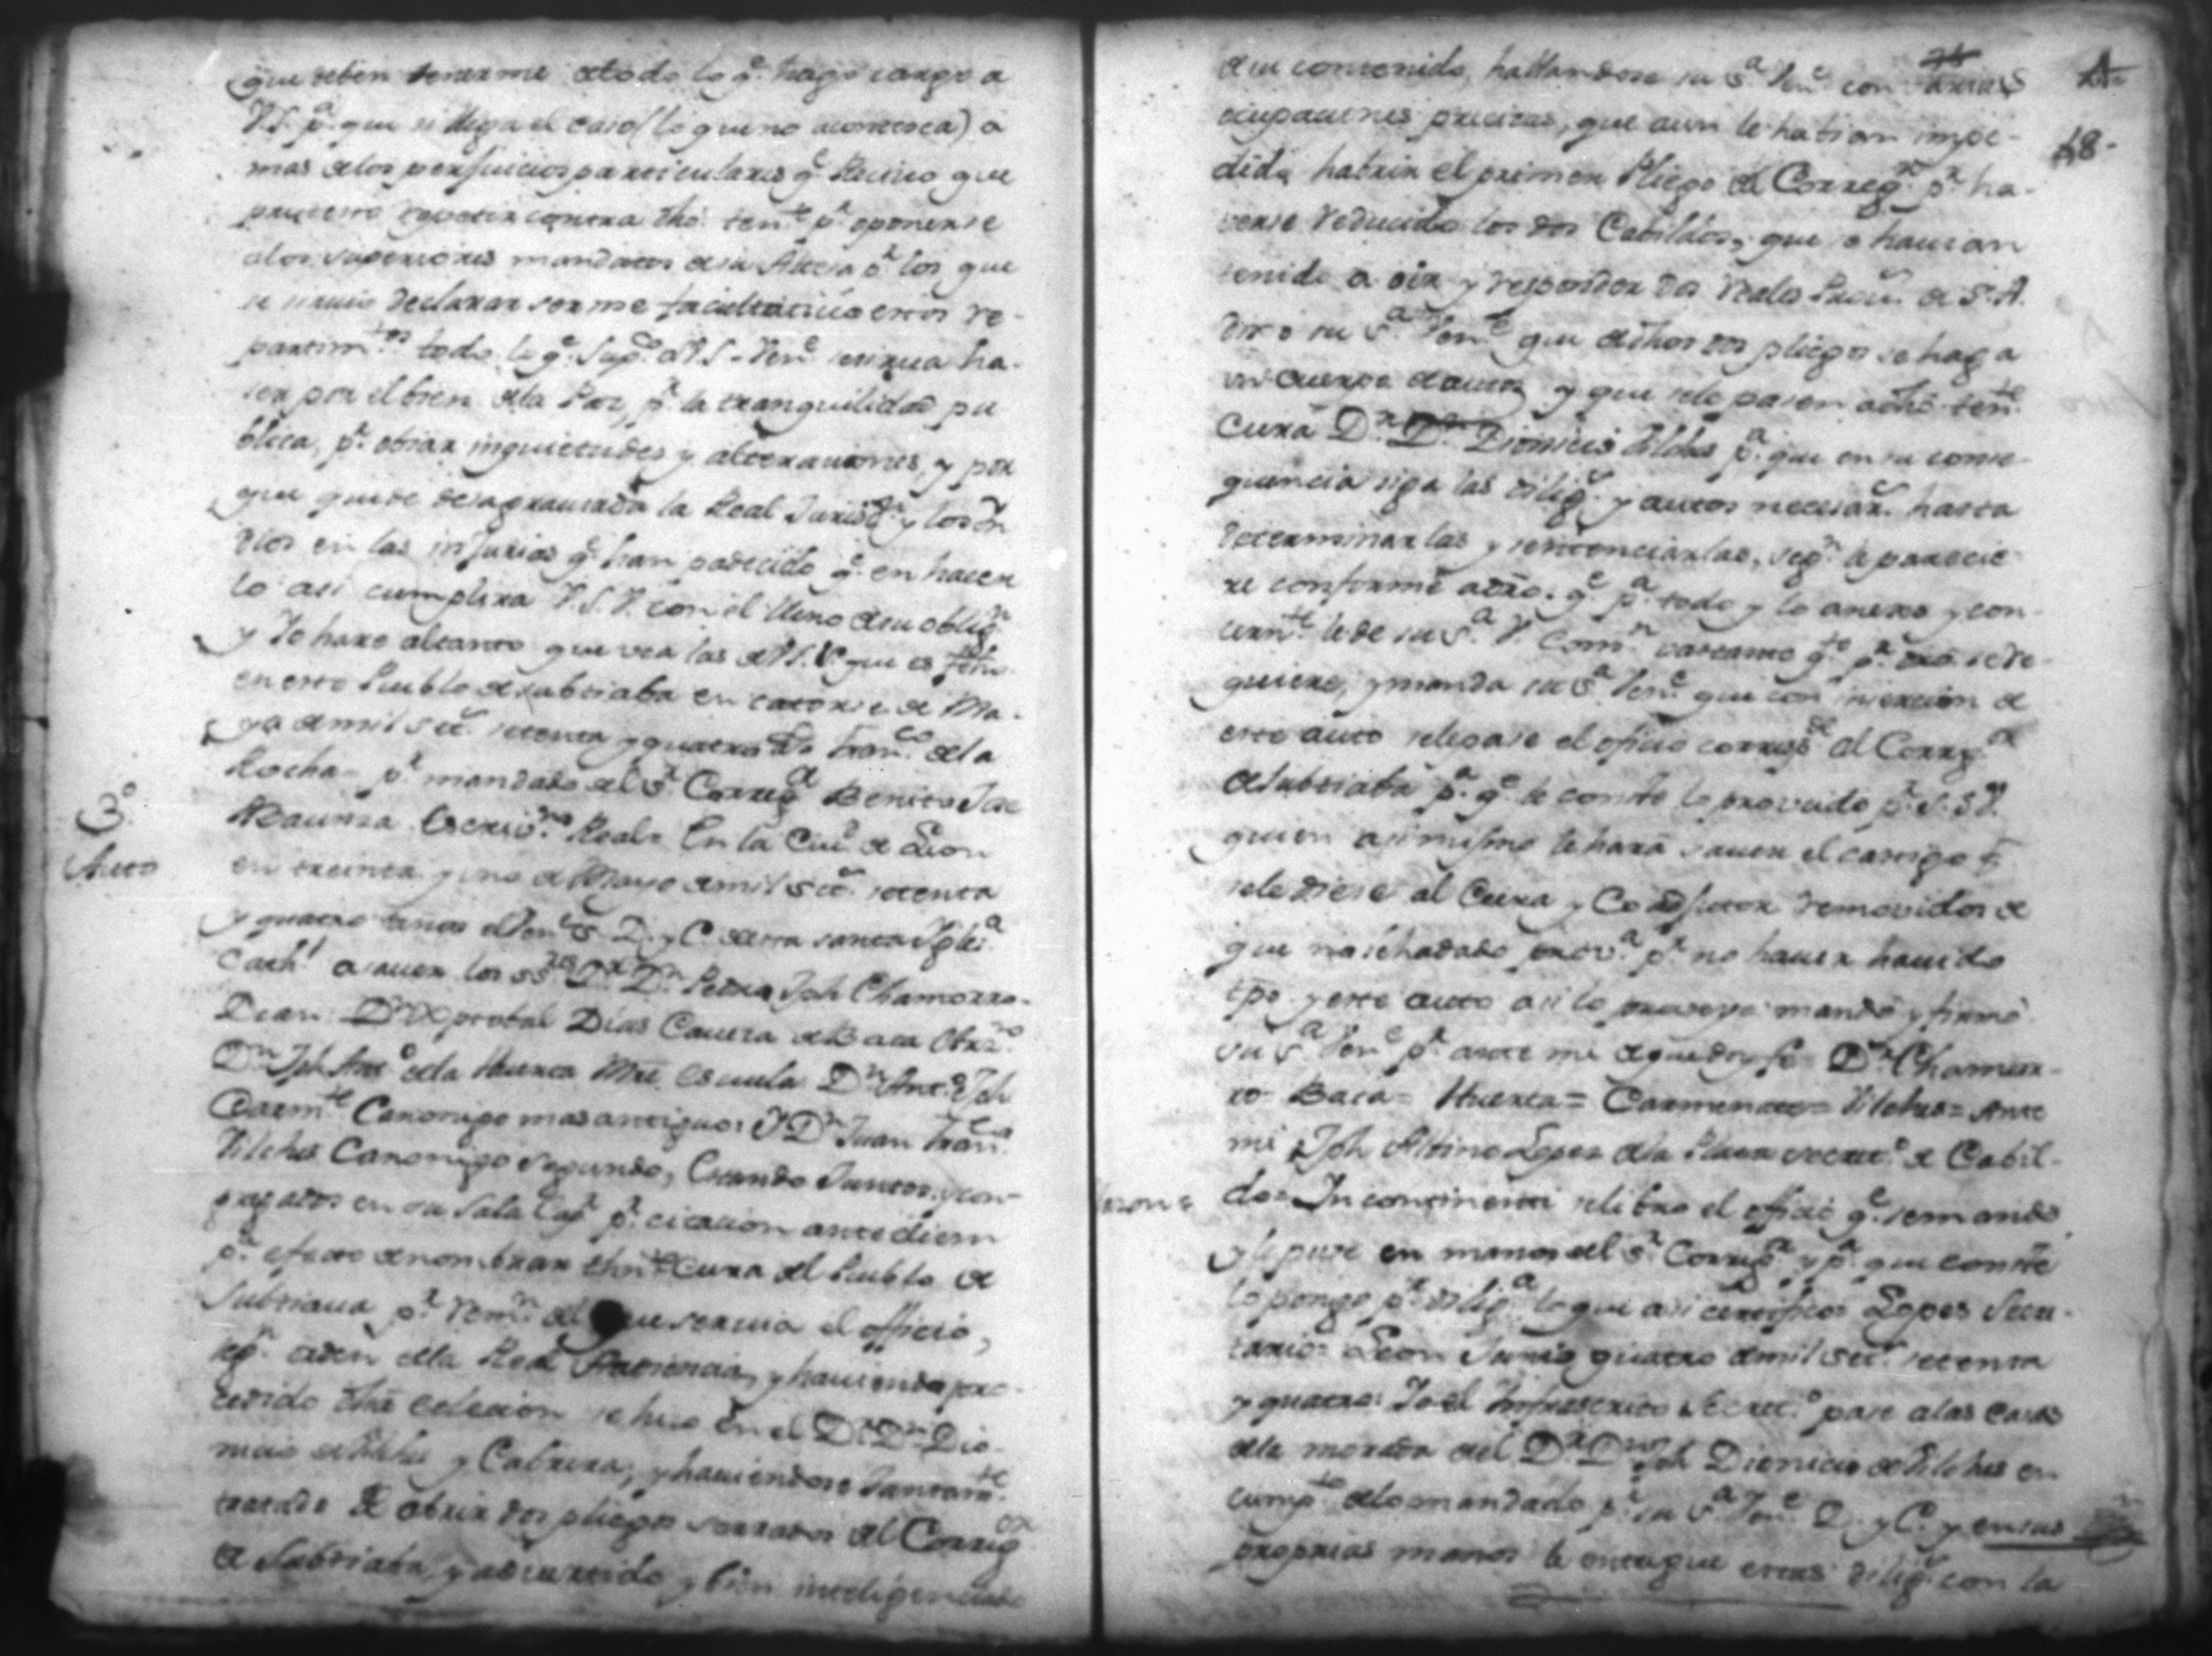 que deben tenerme de todo lo q.e hago cargo a
V.S. p.a que si llega el caso (lo que no acontesca) a
mas de los perjuicios particulares q.e que
contra dho. ten.te p.r oponerse
a los superiores mandatos de su Altesa p.r los que
se declarar serme facultativo estos re-
partim.tos todo lo q.e Sup.co a V S. Ven.e se sirva ha-
ser por el bien de la Paz, p.r la tranquilidad pu
blica, p.r obiar inquietudes y alteraciones, y por
que quede desagraviada la Real Jurisd.n y los In
dios en las injurias q.e han padecido q.e en hacer
lo asi cumplira V.S.V. con el lleno de su oblig.n
y Yo hare al tanto que vea las de V.S.V. que es fecho
en este Pueblo de Subtiaba en catorse de Ma-
yo de mil set.s setenta y quatro Fran.co de la
Rocha = p.r mandado del S.r Correg.or Benito Jose
Abaunsa Escriv.no Real = En la Ciu.d de Leon
3.o
Auto
en treinta y uno de Mayo de mil set.s setenta
y quatro años el Ven.e S. D. y C. de esta santa Igles.a
Cath.l a saver los SS.res D.r D.n Pedro Jph Chamorro
Dean D.n Xptobal Dias Cavesa de Baca
D.n Jph Ant.o de la Huerta Mtre. escuela D.n Ant.o Jph
Carm.te Canonigo mas antiguo: Y D.n Juan Fran.co
Vilches Canonigo segundo, Estando Juntos, y con-
gregados en su Sala Cap.r p.r citacion antediem
p.a efecto de nombrar thn.te Cura del Pueblo de
Subtiava p.r rem.n del que servia el officio,
seg.n orden de la Real Audiencia, y haviendo pro-
cedido dha. eleccion se hiso en el D.r D.n Dio-
nicio de Vilches y Cabrera; y haviendose Juntam.te
tratado de abrir dos pliegos serrados del Correg.or
de Subtiaba, y advertido, y bien inteligenciado
de su contenido, hallandose su S.a Ven.e con varias
4
48.
ocupaciones precisas, que aun le habian impe-
dido habrir el primer Pliego del Correg.r p.r ha-
verse reducido los dos Cabildos, que se havian
tenido a oir y responder dos reales Prov.s de S.A.
Dixo su S.a Ven.e que de dhos dos pliegos se haga
un cuerpo de autos y que se le pasen a dho. ten.te
Cura D.r D.n Dionicio Vilches p.a que en su conse-
quencia siga las dilig.s y autos necesar.s hasta
determinarlas y sentenciarlas, seg.n le parecie-
re conforme a dro. q.e p.a todo y lo anexo y con-
cern.te le da su S.a V. Com.n vastante q.to p.r dro. se re-
quiere, y manda su S.a Ven.e que con insercion de
este auto se le pase el oficio corresp.te al Correg.or
de Subtiaba p.a q.e le conste lo proveido p.r S.S.V.
quien asi mismo le hara saver el castigo q.e
se le diere al Cura y Coadjutor removidos de
que no se ha dado prov.a p.r no haver havido
tpo. y este auto asi lo proveyo mandó y firmó
su S.a Ven.e p.r ante mi de que doy fe = D.r Chamor-
ro = Baca = Huerta = Carmenate = Vilches = Ante
mi Jph Albino Lopes de la Plaza secret.o de Cabil-
do = In continenti se libro el officio q.e se mandó
y le puse en manos del S.r Correg.or y p.a que conste
lo pongo p.r dilig.a lo que asi certifico = Lopes Secre-
tario = Leon Junio quatro de mil set.s setenta
y quatro: Yo el Infrascrito Secret.o pase a las casas
de la morada del D.r D.n Jph Dionicio de Vilches en
cump.to de lo mandado p.r su S.a Ven.e D. y C. y en sus
proprias manos le entregue estas dilig.s con la